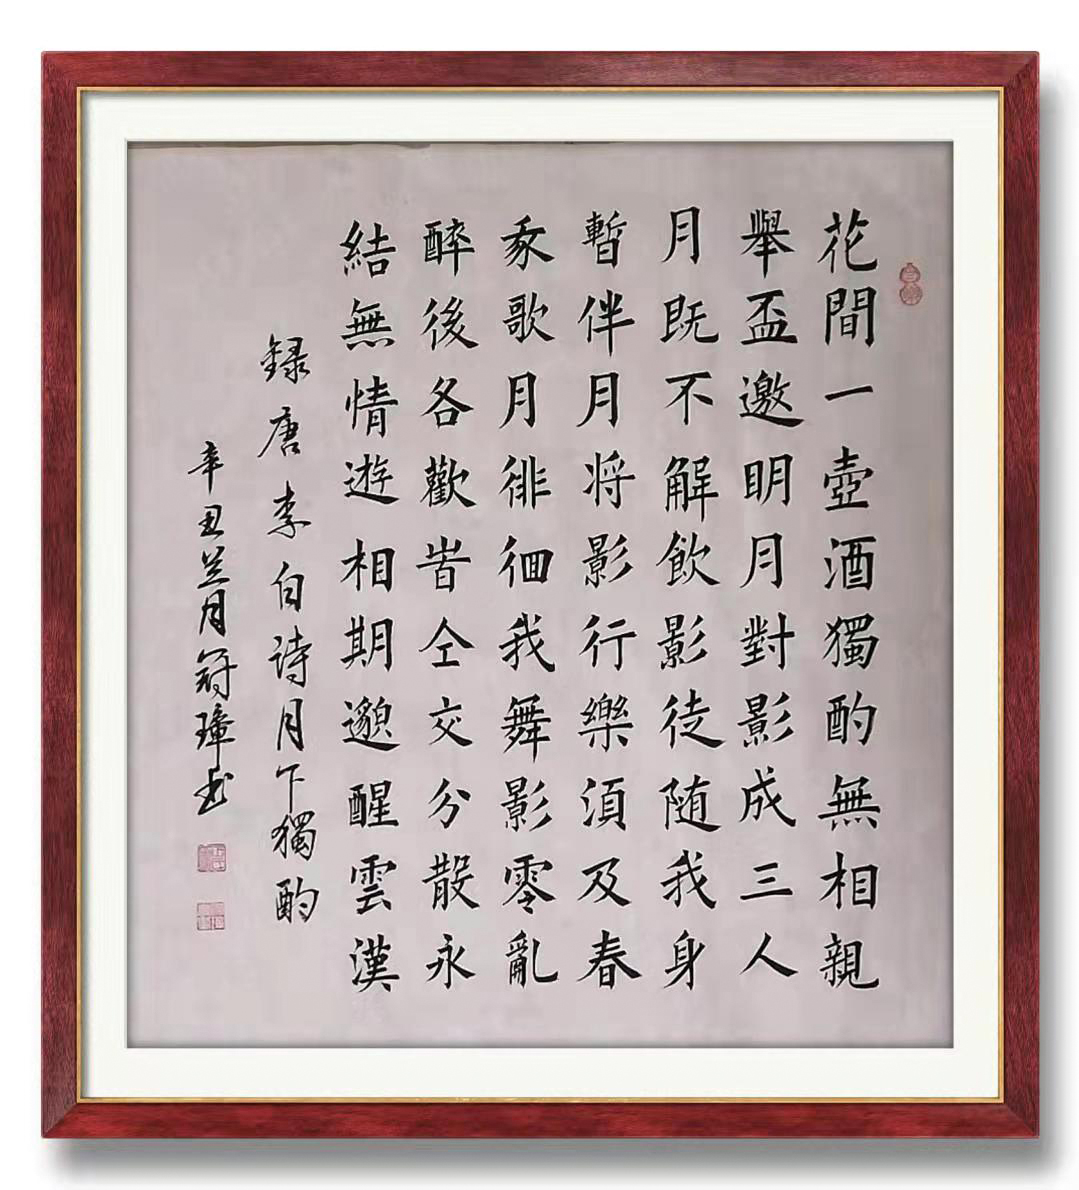 花間一壺酒獨酌無相親
舉盃邀明月對影成三人
月既不解飲影徒随我身
暫伴月将影行樂須及春
歌月徘徊我舞影零亂
醉後各歡旹仝交分散永
結無情遊相期邈醒雲漢
録唐李白诗月下獨酌
辛丑兰月冠璋书